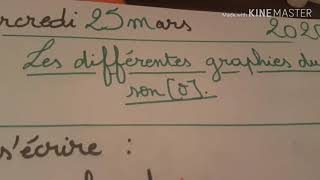 Made with KINEMASTER
rcredi 25 mars 2020
Les différentes graphies du
son [o].
s'écrire :